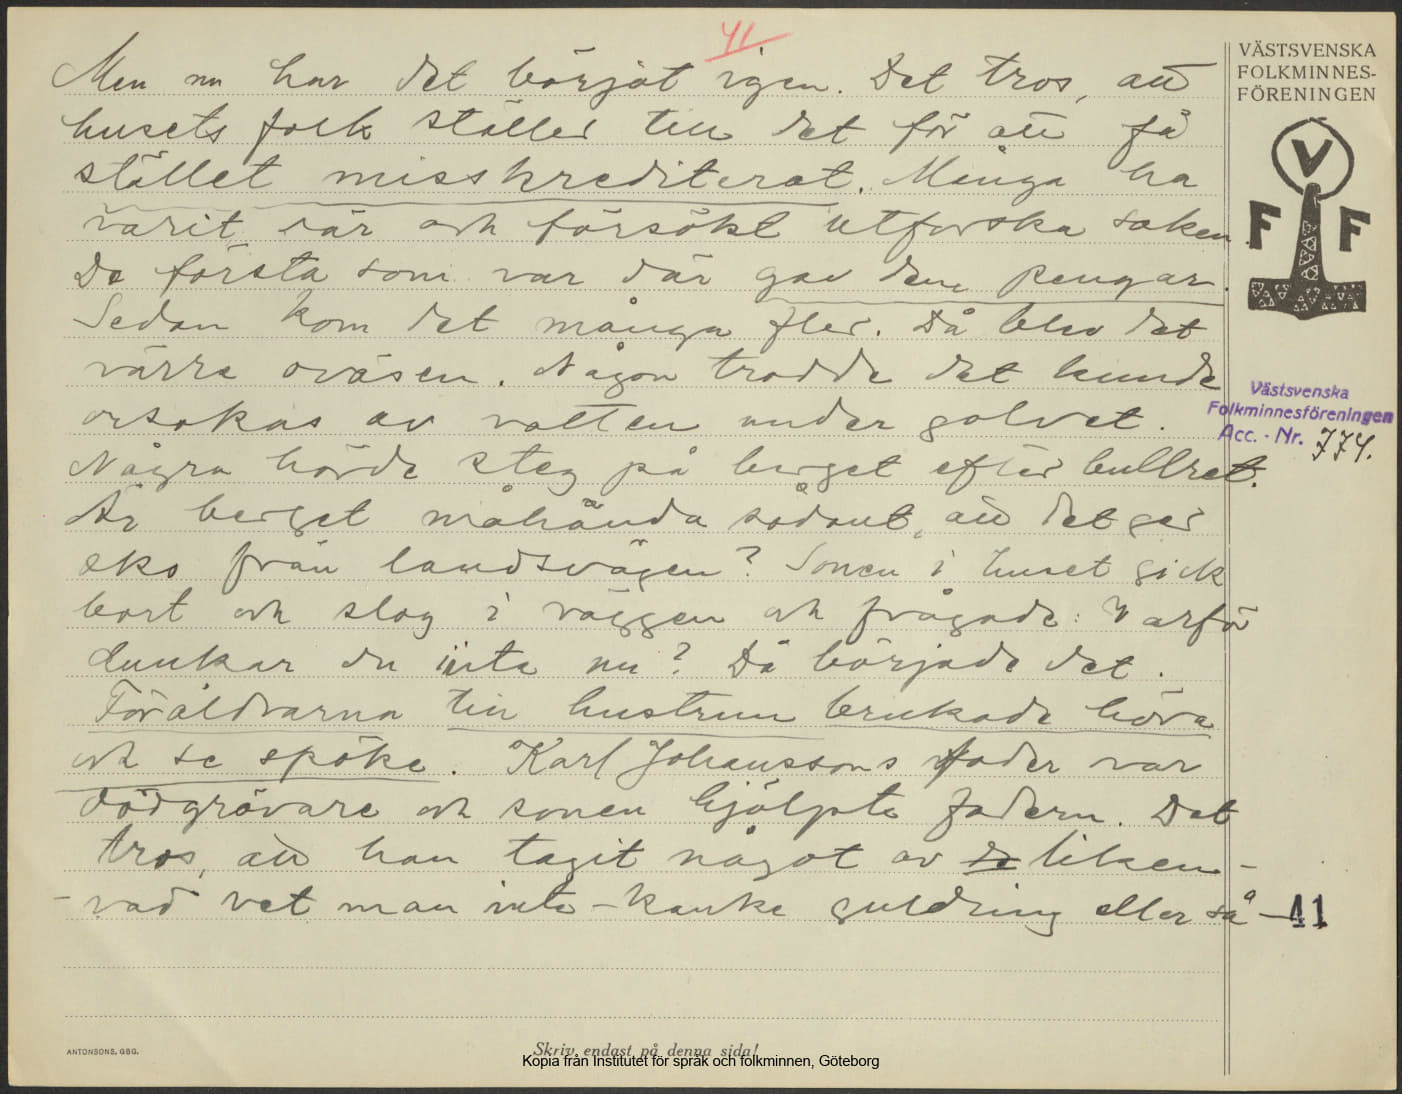 41
Men nu har det börjat igen. Det tros, att
husets folk ställer till det för att få
stället misskrediterat. Många ha
varit där och försökt utforska saken.
De första som var där gav dem pengar.
Sedan kom det många fler. Då blev det
värre oväsen. Någon trodde det kunde
orsakas av vatten under golvet.
Några hörde steg på berget efter bullret.
Är berget måhända sådant, att det ger
eko från landsvägen? Sonen i huset gick
bort och slog i väggen och frågade: Varför
dunkar du inte nu? Då började det.
Föräldrarna till hustrun brukade höra
och se spöke. Karl Johanssons fader var
dödgrävare och sonen hjälpte fadern. Det
tros, att han tagit något av de liken -
- vad vet man inte - kanke guldring eller så -
VÄSTSVENSKA
FOLKMINNES-
FÖRENINGEN
V
F F
Västsvenska
Folkminnesföreningen
Acc. - Nr. 774.
41
ANTONSONS, GBG.
Skriv endast på denna sida!
Kopia från Institutet för språk och folkminnen, Göteborg